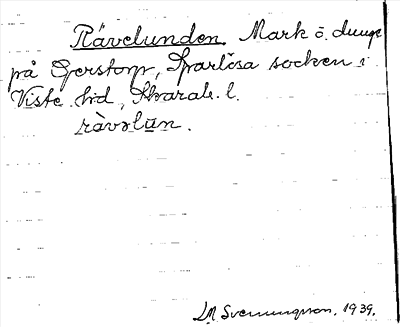 Rävelunden. Mark o. dunge
på Gerstorp, Sparlösa socken i
Viste hd, Skarab. l.
ràvəlūn.
LM Svenungsson. 1939.